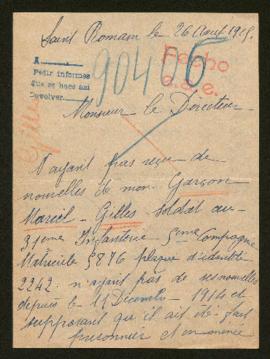 Saint Romain le 26 Aout 1915.
A
Pedir informes
que se hace asi
Devolver
90406
Fecho
Monsieur le Directeur
N'ayant pas reçu de
nouvelles de mon Garçon
Marcel - Gilles Soldat au
31eme Infanterie 5eme Compagnie
Matricule 5876 plaque d'identité
2242. n'ayant pas de ses nouvelles
depuis le 11 Decembre - 1914 et
supposant qu'il ait été fait
prisonnier et